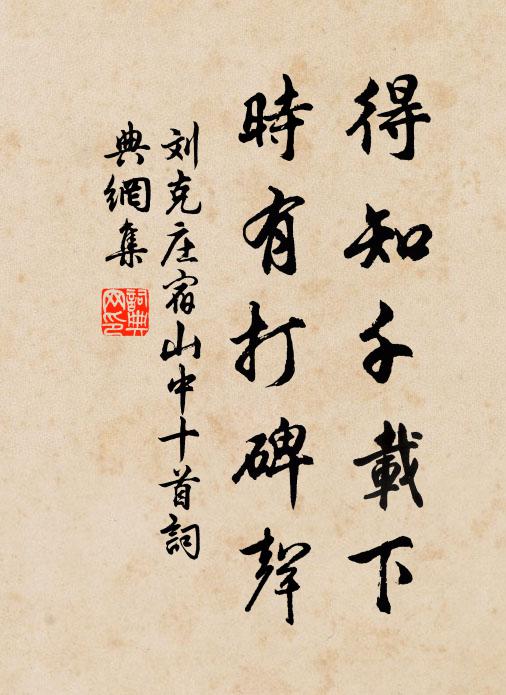 得知千載下
時有打碑聲
刘克庄宿山中十首詞
典網集
詞典
网印